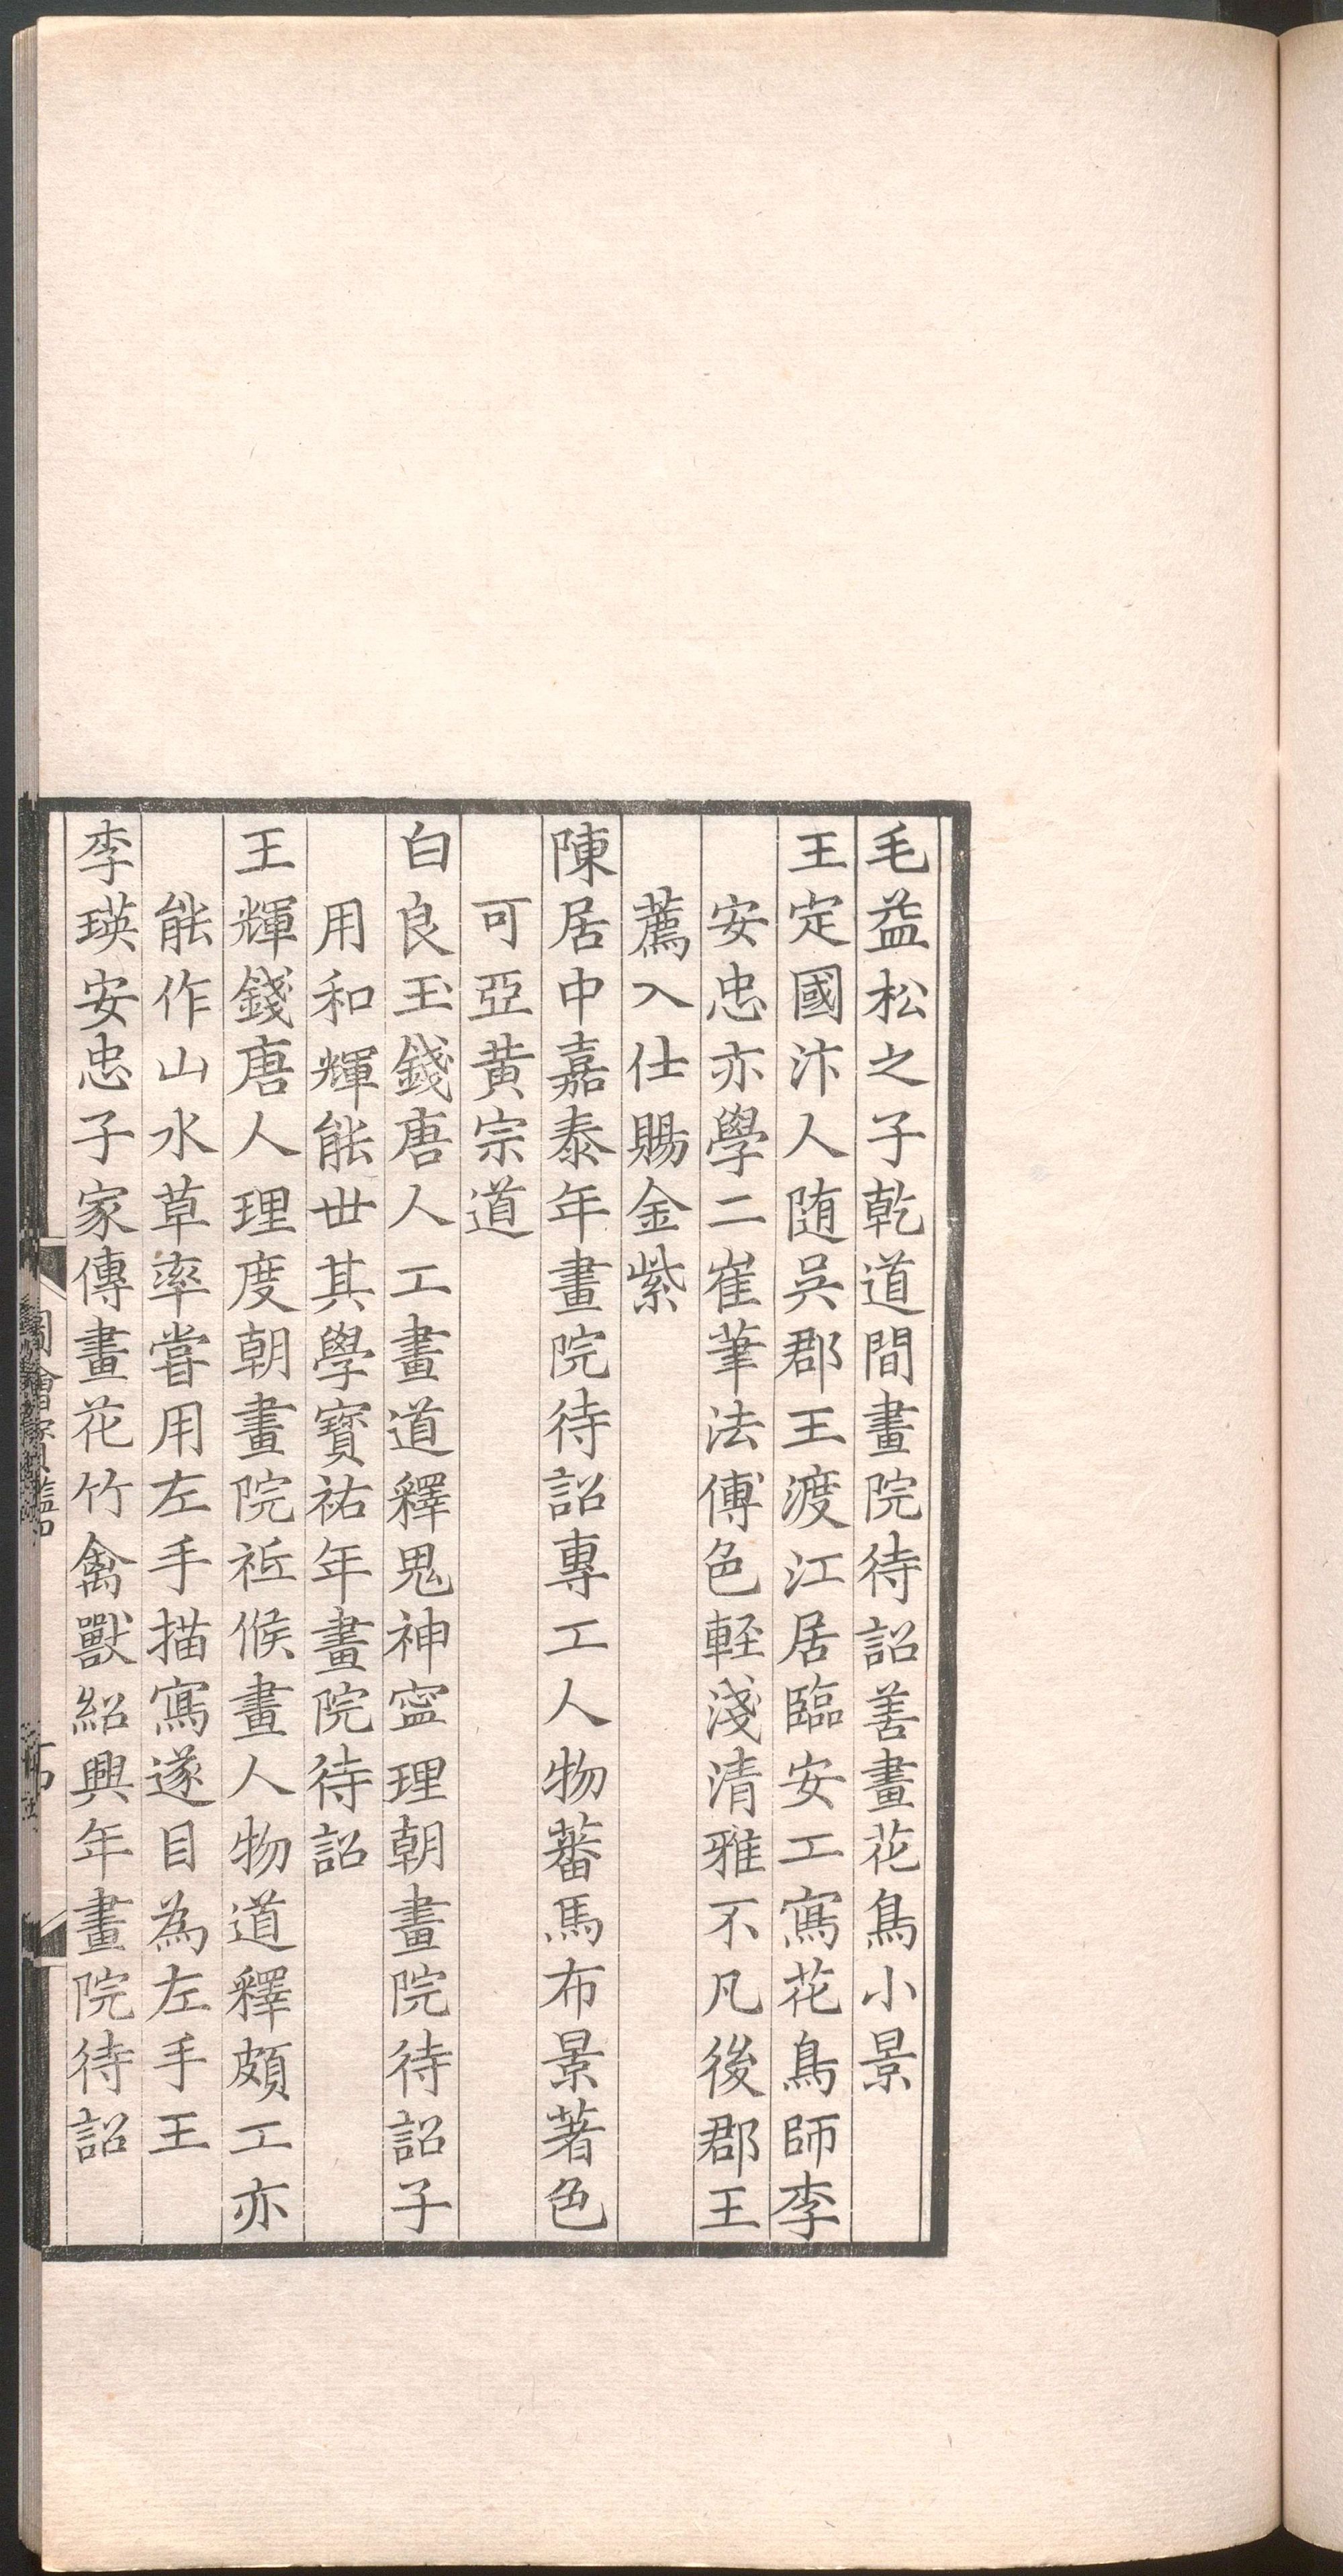 毛益松之子乾道間畫院待詔善畫花鳥小景
王定國汴人随吳郡王渡江居臨安工寫花鳥師李
安忠亦學二崔筆法傅色軽淺清雅不凡後郡王
薦入仕賜金紫
陳居中嘉泰年畫院待詔專工人物蕃馬布景著色
可亞黃宗道
白良玉錢唐人工畫道釋鬼神寍理朝畫院待詔子
用和輝能世其學寶祐年畫院待詔
王輝錢唐人理度朝畫院祗候畫人物道釋頗工亦
能作山水草率嘗用左手描寫遂目為左手王
李瑛安忠子家傳畫花竹禽獸紹興年畫院待詔